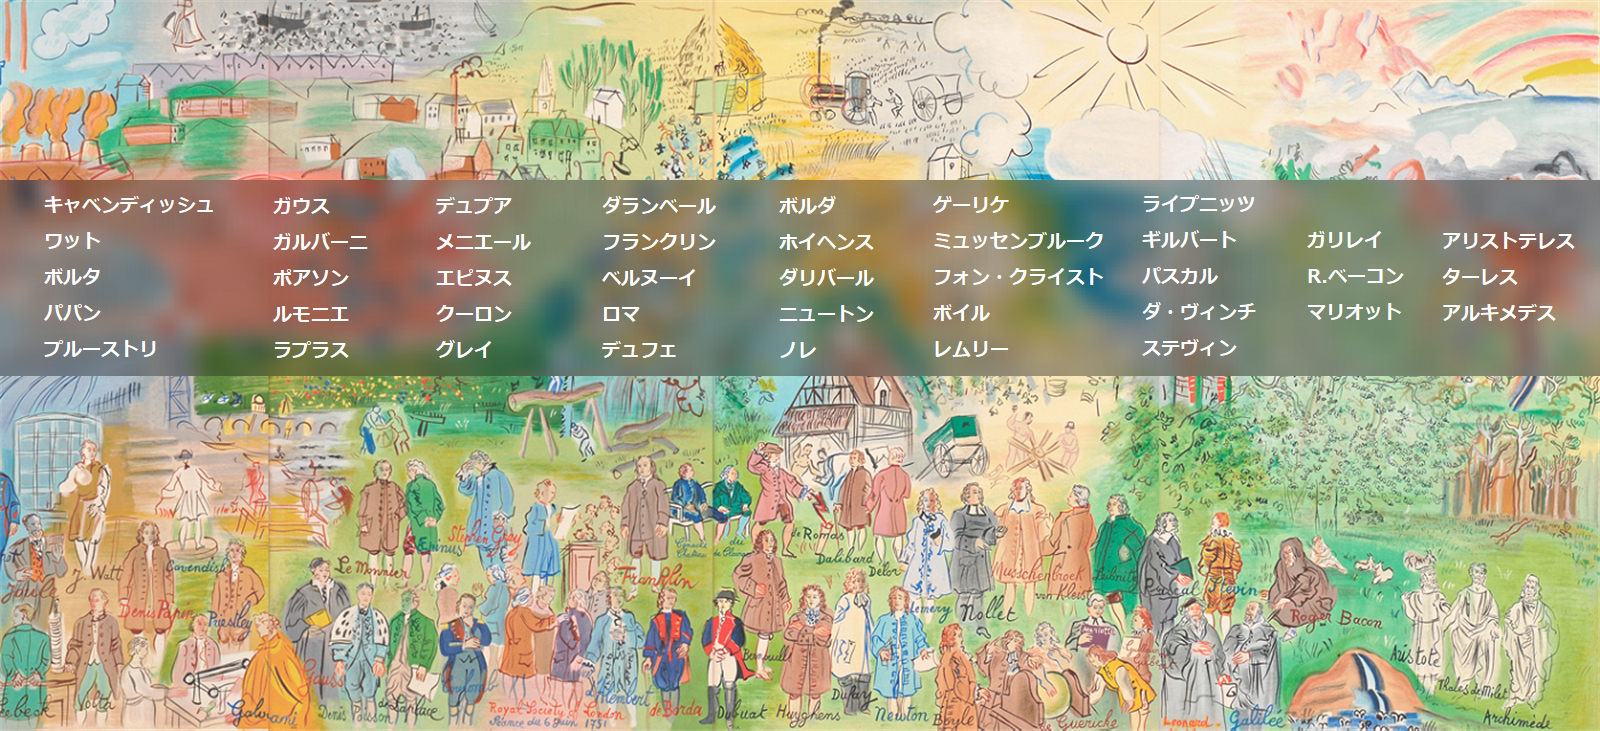 キャベンディッシュ
ワット
ボルタ
パパン
プルーストリ
ガウス
ガルバーニ
ポアソン
ルモニエ
ラプラス
デュプア
メニエール
エピヌス
クーロン
グレイ
ダランベール
フランクリン
ベルヌーイ
ロマ
デュフェ
ボルダ
ホイヘンス
ダリバール
ニュートン
ノレ
ゲーリケ
ミュッセンブルーク
フォン・クライスト
ボイル
レムリー
ライプニッツ
ギルバート
パスカル
ダ・ヴィンチ
ステヴィン
ガリレイ
R.ベーコン
マリオット
アリストテレス
ターレス
アルキメデス
J. Watt
Cavendish
Denis Papin
Priestley
Volta
Galvani
Gauss
Denis Poisson
de Laplace
Le Monnier
Æpinus
Stephen Gray
Coulomb
Royal Society of London
Séance du 6 Juin 1751
d'Alembert
de Borda
Franklin
de Romas
Dalibard
Delor
Bernouilli
Dubuat
Huyghens
Dufay
Newton
Lemery
Nollet
Boyle
de Guericke
Musschenbroek
von Kleist
Leibnitz
Pascal
Stevin
Galilée
Roger Bacon
Aristote
Thales de Milet
Archimède